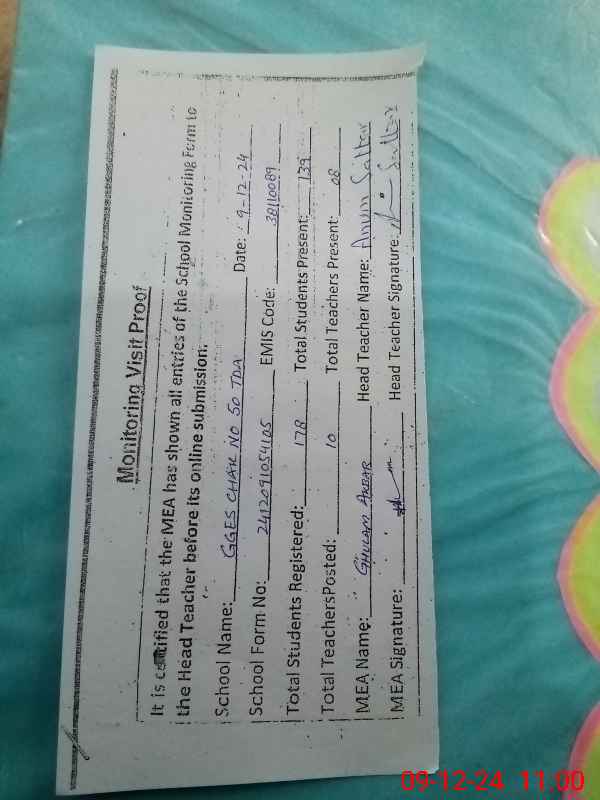 Monitoring Visit Proof
It is certified that the MEA has shown all entries of the School Monitoring Form to
the Head Teacher before its online submission.
School Name: GGES CHAK NO 50 TDA Date: 9-12-24
School Form No: 2412091054105 EMIS Code: 38110089
Total Students Registered: 178 Total Students Present: 139
Total TeachersPosted: 10 Total Teachers Present: 08
MEA Name: GHULAM AKBAR Head Teacher Name: Anum Sattar
MEA Signature: Head Teacher Signature: Sattar
09-12-24 11:00